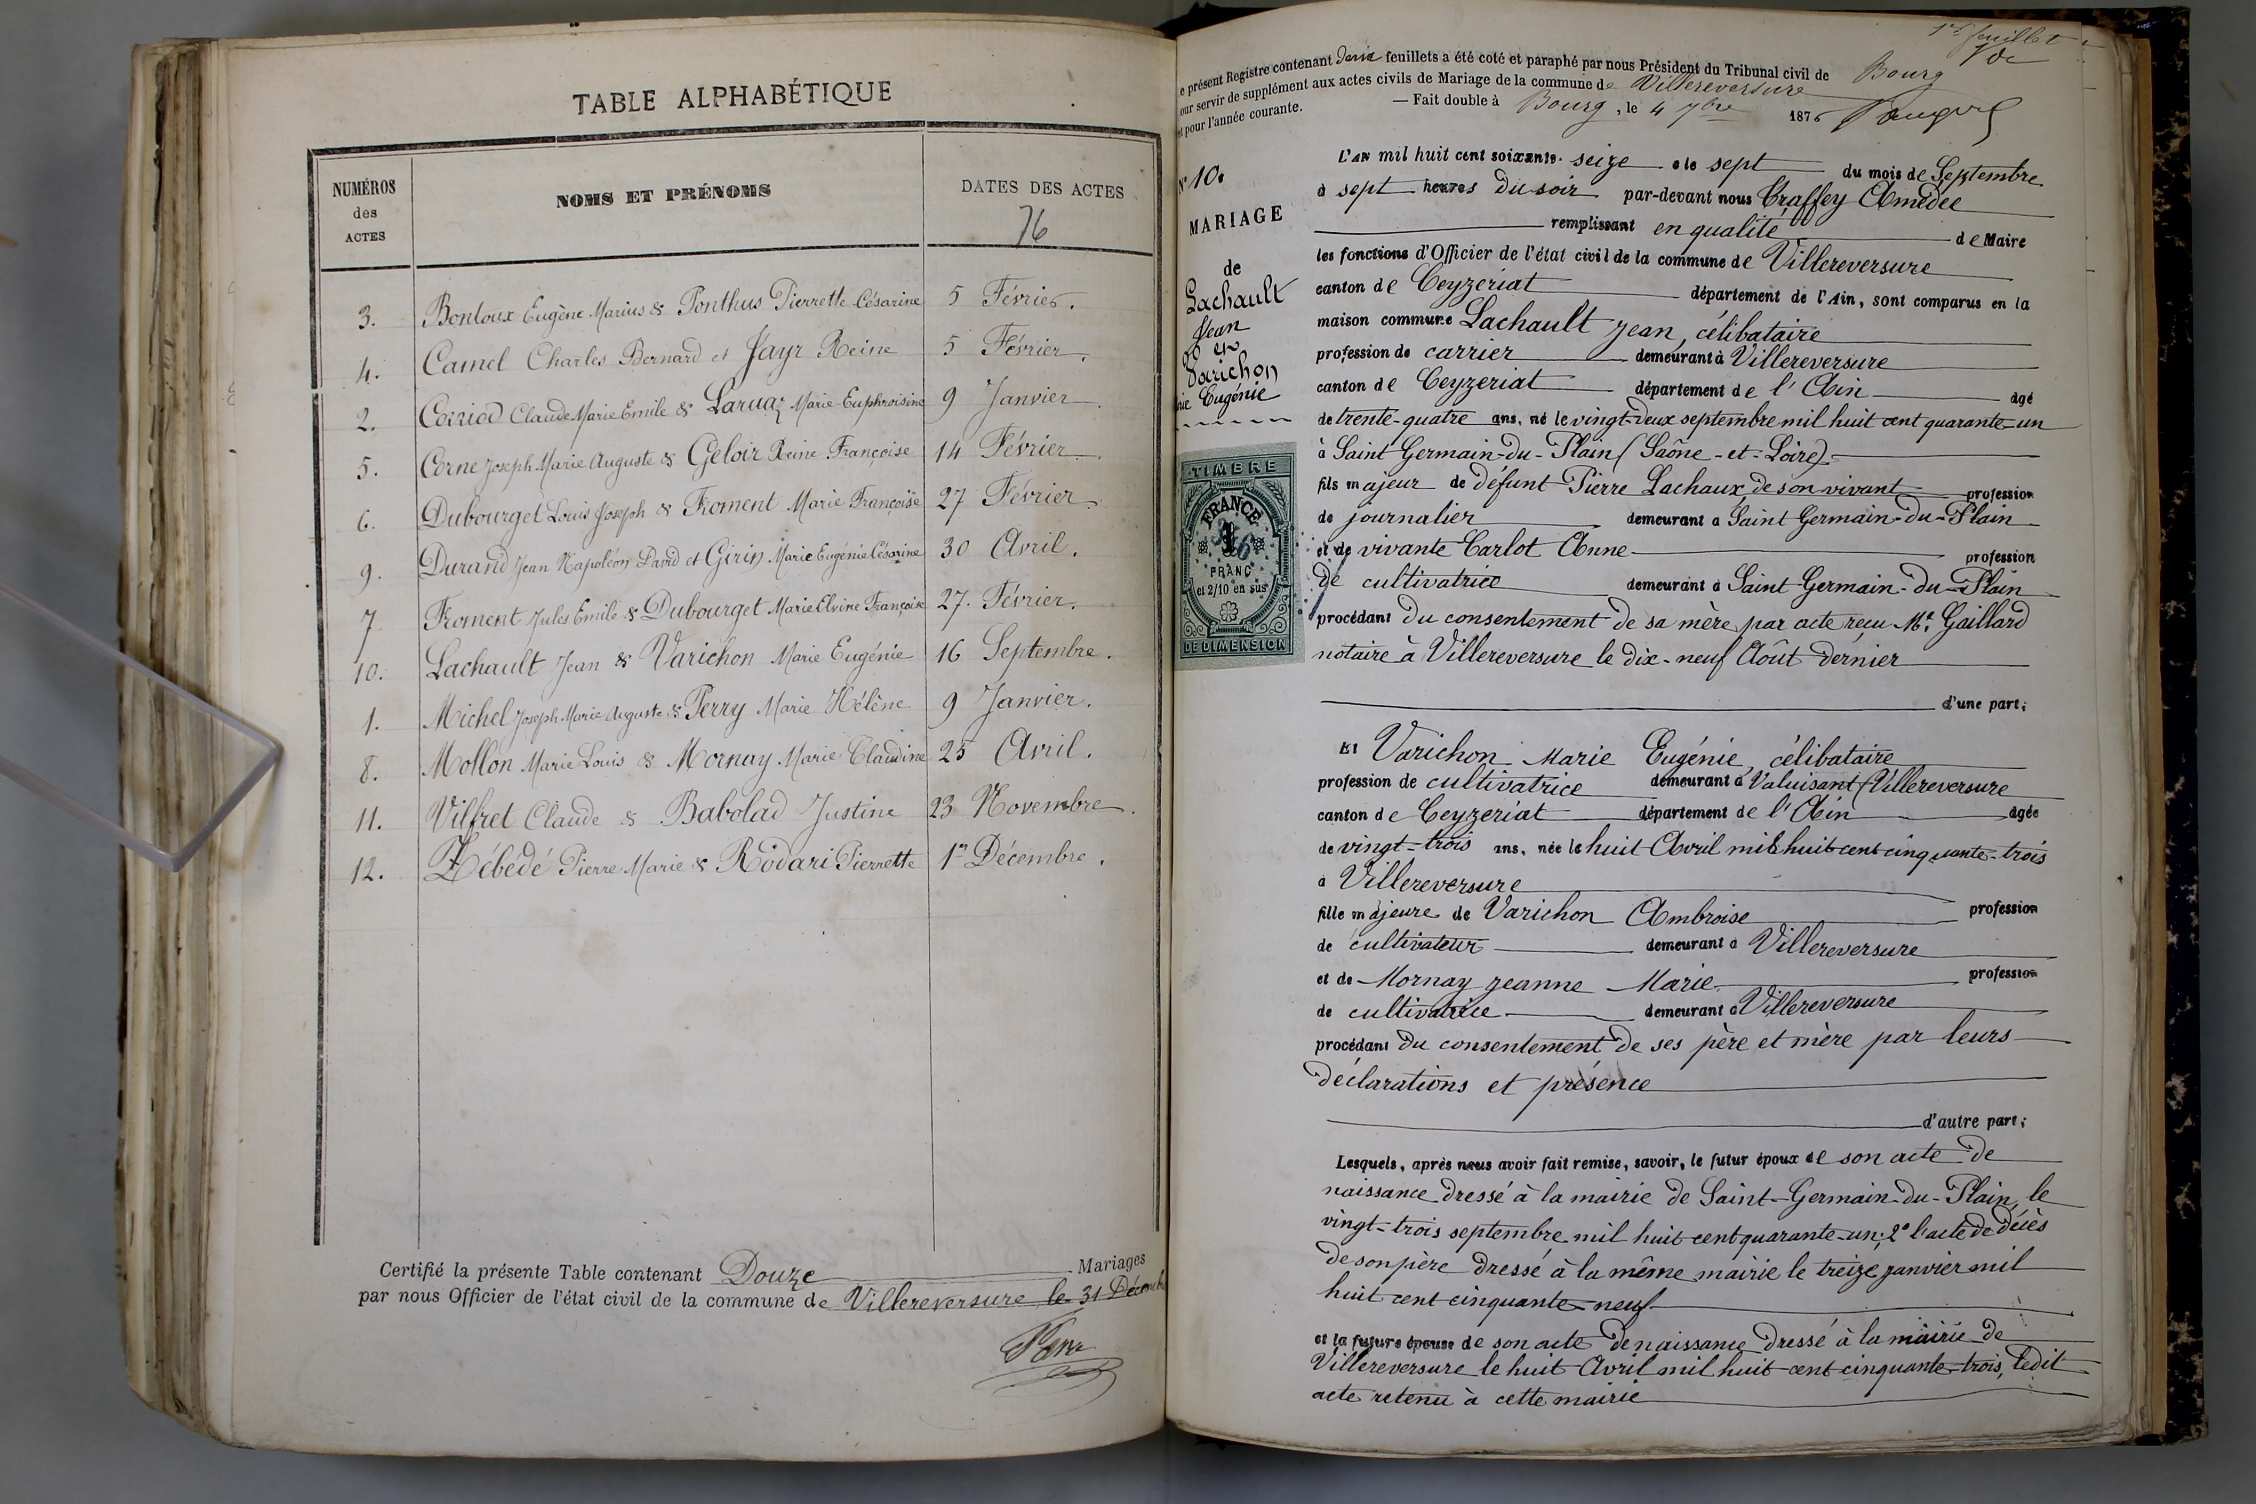 TABLE ALPHABÉTIQUE
NUMÉROS
des
ACTES
NOMS ET PRÉNOMS
DATES DES ACTES
76
3. Bonloux Eugène Marius & Ponthus Pierrette Césarine 5 Février.
4. Camel Charles Bernard et Jayr Reine 5 Février.
2. Coiriod Claude Marie Emile & Laruaz Marie-Euphroisine 9 Janvier.
5. Corne Joseph Marie Auguste & Geloir Reine Françoise 14 Février.
6. Dubourget Louis Joseph & Froment Marie Françoise 27 Février.
9. Durand Jean Napoléon David et Girin Marie Eugénie Césarine 30 Avril.
7 Froment Jules Emile & Dubourget Marie Elvine Françoise 27. Février.
10. Lachault Jean & Varichon Marie Eugénie 16 Septembre.
1. Michel Joseph Marie Auguste & Perry Marie Hélène 9 Janvier.
8. Mollon Marie Louis & Mornay Marie Claudine 25 Avril.
11. Vilfret Claude & Babolad Justine 23 Novembre.
12. Zébédé Pierre Marie & Rodari Pierrette 1er Décembre.
Certifié la présente Table contenant Douze Mariages
par nous Officier de l'état civil de la commune de Villereversure le 31 Décembre
1er feuillet
e présent Registre contenant feuillets a été coté et paraphé par nous Président du Tribunal civil de Bourg
our servir de supplément aux actes civils de Mariage de la commune de Villereversure
et pour l'année courante. — Fait double à Bourg, le 4 7bre 1876
N° 10.
MARIAGE
de
Lachault
Jean
et
Varichon
rie Eugénie
TIMBRE
FRANCE
1
FRANC
et 2/10 en sus
DE DIMENSION
L'AN mil huit cent soixante-seize e le sept du mois de Septembre
à sept heures du soir par-devant nous Craffey Amédée
remplissant en qualité de Maire
les fonctions d'Officier de l'état civil de la commune de Villereversure
canton de Ceyzeriat département de l'Ain, sont comparus en la
maison commune Lachault Jean, célibataire
profession de carrier demeurant à Villereversure
canton de Ceyzeriat département de l'Ain âgé
de trente-quatre ans, né le vingt-deux septembre mil huit cent quarante-un
à Saint Germain-du-Plain (Saône-et-Loire).
fils majeur de défunt Pierre Lachaux, de son vivant profession
de journalier demeurant à Saint Germain-du-Plain
et de vivante Carlot Anne profession
de cultivatrice demeurant à Saint Germain-du-Plain
procédant du consentement de sa mère par acte reçu Me. Gaillard
notaire à Villereversure le dix-neuf Août dernier
d'une part;
Et Varichon Marie Eugénie, célibataire
profession de cultivatrice demeurant à Valuisant (Villereversure
canton de Ceyzeriat département de l'Ain âgée
de vingt-trois ans, née le huit Avril mil huit cent cinquante-trois
à Villereversure
fille majeure de Varichon Ambroise profession
de cultivateur demeurant à Villereversure
et de Mornay Jeanne Marie profession
de cultivatrice demeurant à Villereversure
procédant du consentement de ses père et mère par leurs
déclarations et présence
d'autre part;
Lesquels, après nous avoir fait remise, savoir, le futur époux de son acte de
naissance dressé à la mairie de Saint-Germain-du-Plain, le
vingt-trois septembre mil huit cent quarante-un; 2° l'acte de décès
de son père dressé à la même mairie le treize janvier mil
huit cent cinquante-neuf
et la future épouse de son acte de naissance dressé à la mairie de
Villereversure le huit Avril mil huit cent cinquante-trois, ledit
acte retenu à cette mairie